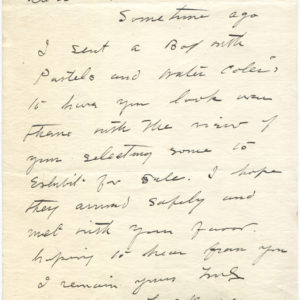 Sometime ago
I sent a Box with
Pastels and Water Colers
to have you look over
them with the view of
your selecting some to
Exhibit for Sale. I hope
they arrived safely and
met with your favor.
hoping to hear from you
I remain yours truly